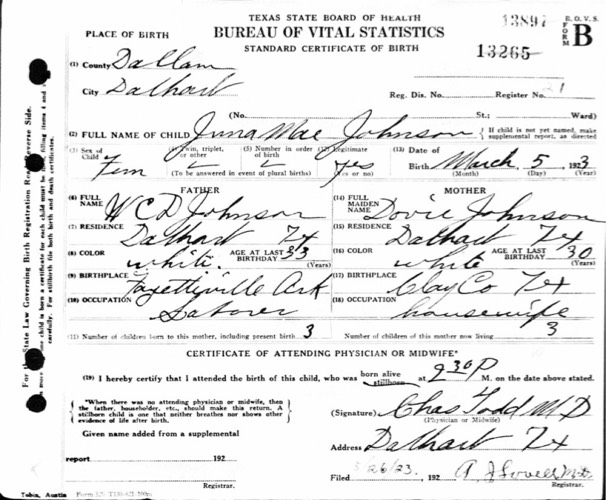 TEXAS STATE BOARD OF HEALTH
BUREAU OF VITAL STATISTICS
STANDARD CERTIFICATE OF BIRTH
13897
13265
B. O. V. S.
FORM B
PLACE OF BIRTH
(1) County Dallam
City Dalhart
Reg. Dis. No. Register No. 21
(No. St.; Ward)
(2) FULL NAME OF CHILD Juna Mae Johnson { If child is not yet named, make supplemental report, as directed
(3) Sex of Child Fem (4) Twin, triplet, or other (5) Number in order of birth (12) Legitimate yes (13) Date of Birth March 5 1923
(To be answered in event of plural births) (Yes or no) (Month) (Day) (Yr.)
FATHER MOTHER
(6) FULL NAME W C D Johnson (14) FULL MAIDEN NAME Dovie Johnson
(7) RESIDENCE Dalhart Tx (15) RESIDENCE Dalhart Tx
(8) COLOR white. AGE AT LAST BIRTHDAY 33 (Years) (16) COLOR white AGE AT LAST BIRTHDAY 30 (Years)
(9) BIRTHPLACE Fayetteville Ark (17) BIRTHPLACE Clay Co Tx
(10) OCCUPATION Laborer (18) OCCUPATION housewife
(11) Number of children born to this mother, including present birth 3 Number of children of this mother now living 3
CERTIFICATE OF ATTENDING PHYSICIAN OR MIDWIFE*
(19) I hereby certify that I attended the birth of this child, who was born alive stillborn at 2 30 P M. on the date above stated.
*When there was no attending physician or midwife, then the father, householder, etc., should make this return. A stillborn child is one that neither breathes nor shows other evidence of life after birth.
(Signature) Chas Todd M D
(Physician or Midwife)
Given name added from a supplemental
Address Dalhart Tx
report 192
Filed 5/26/23, 192 A J Lovell
Registrar. Registrar.
Tobin, Austin
For the State Law Governing Birth Registration Read Reverse Side.